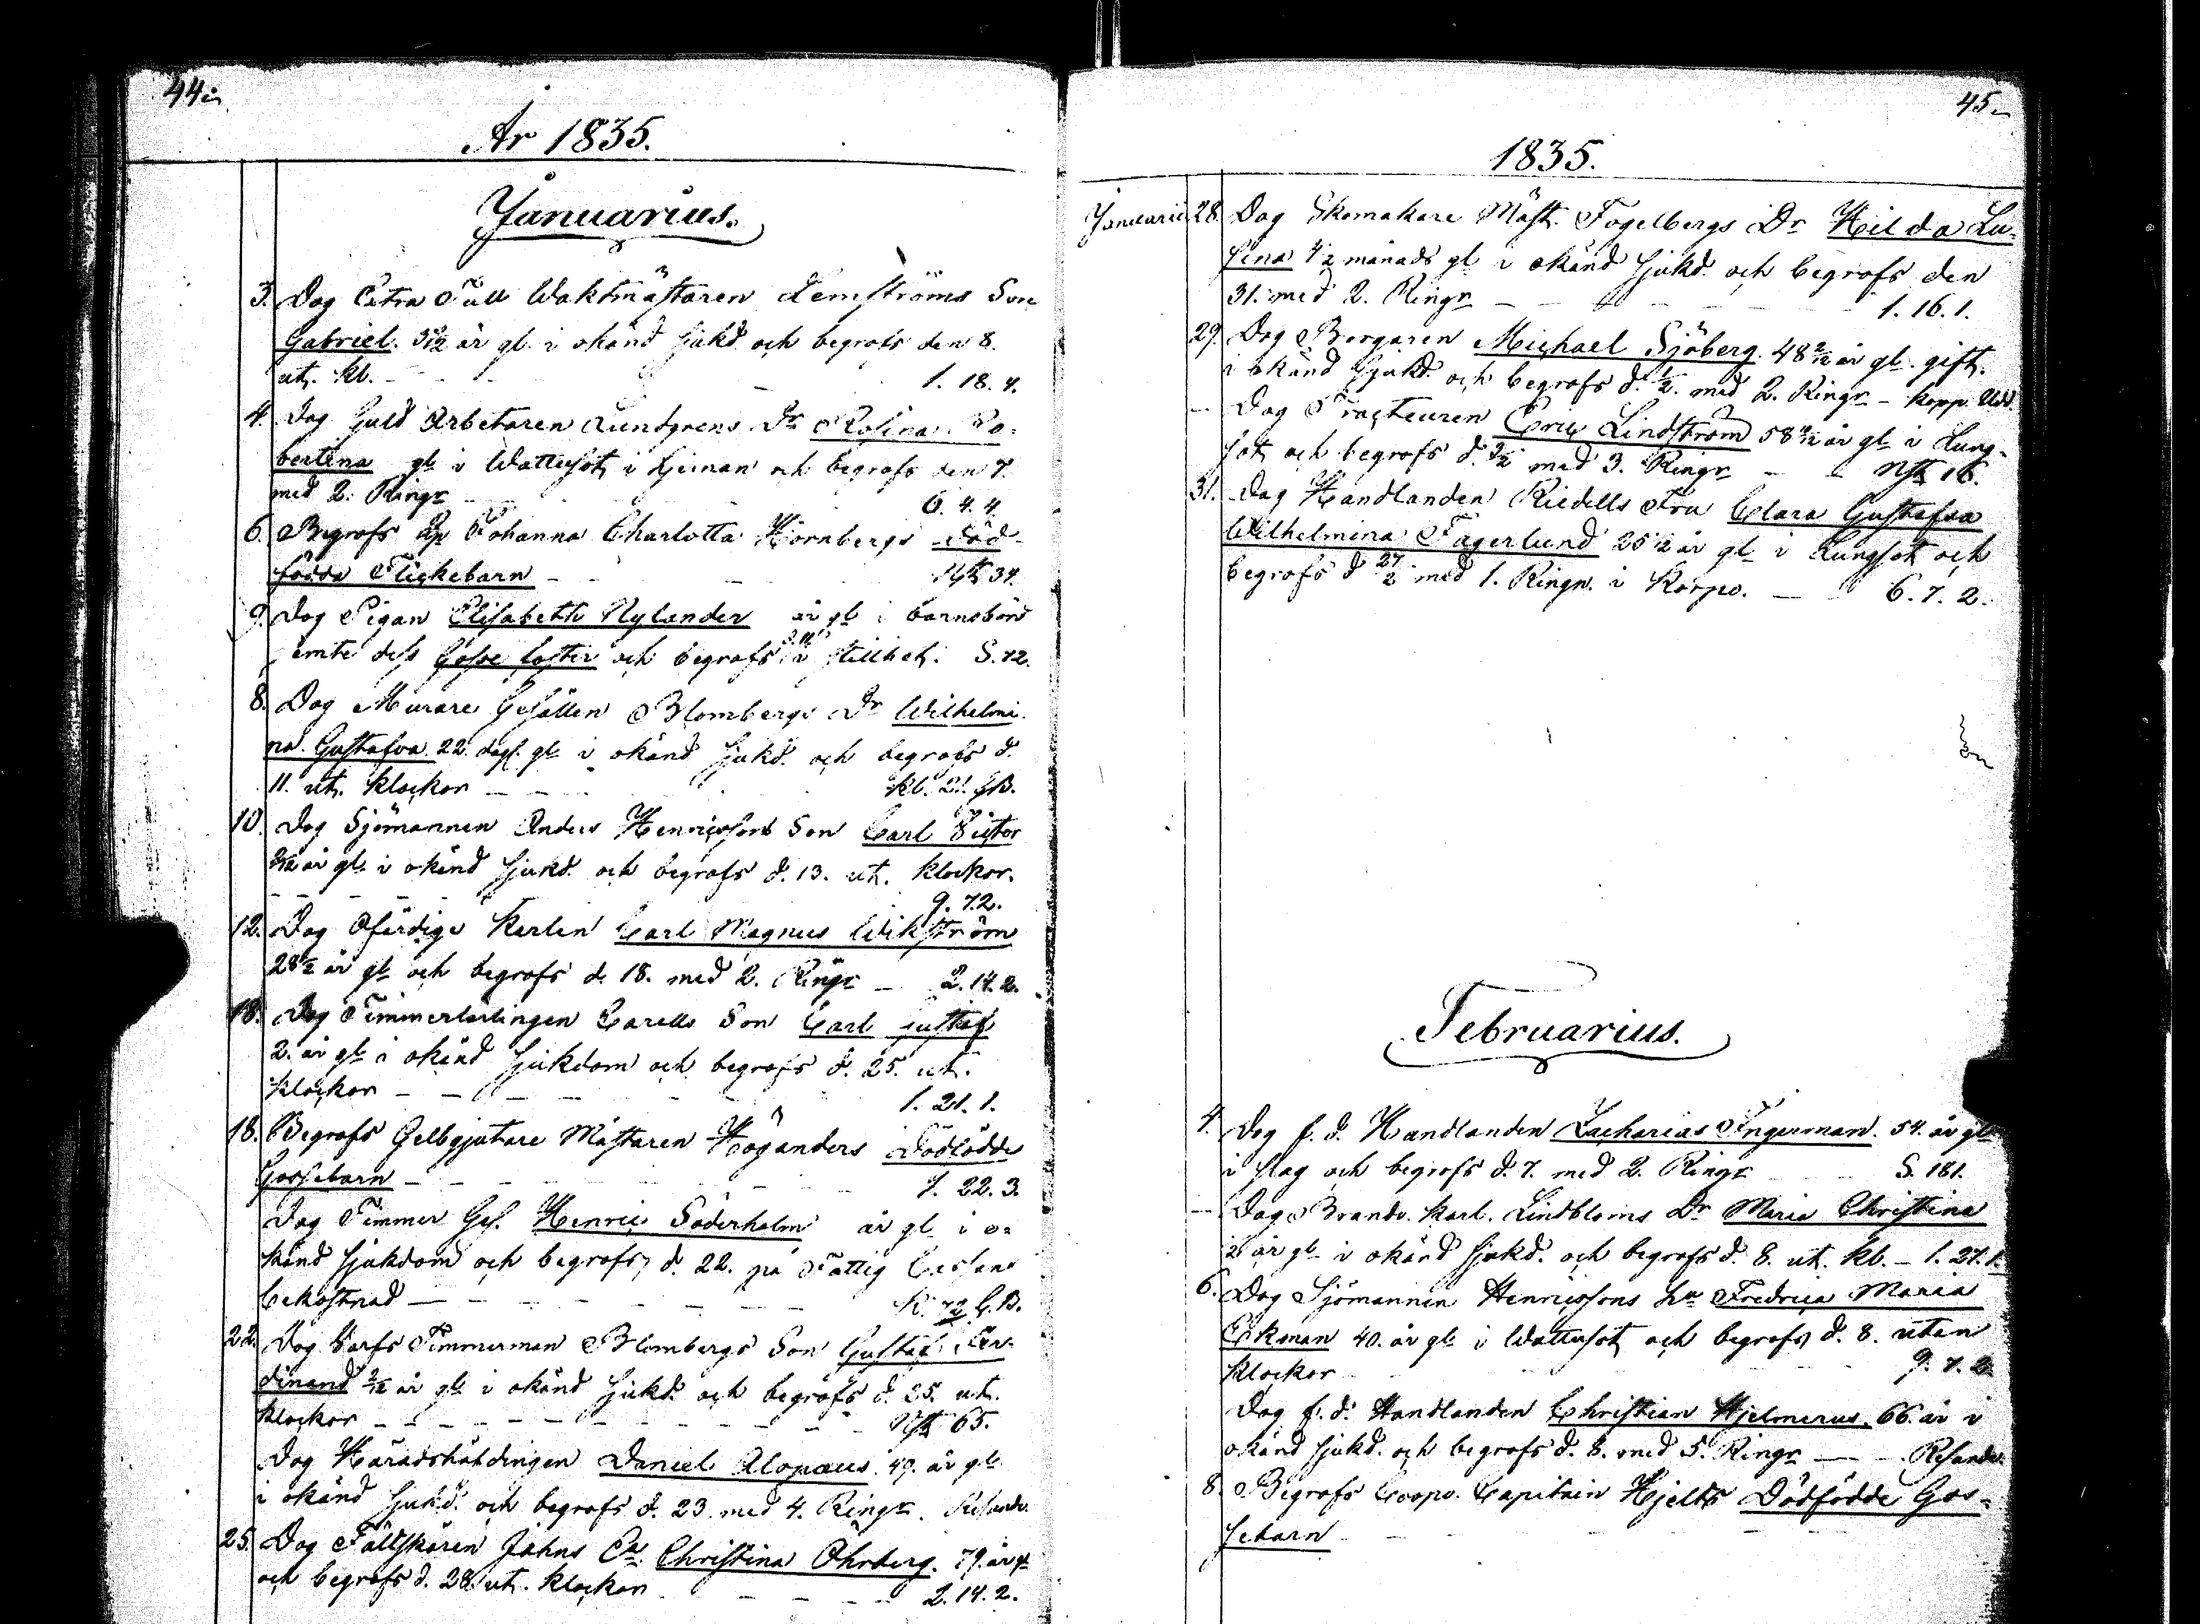 44.
År 1835.
Januarius.
3. Dog Extra Tull Waktmästaren Lemströms Son
Gabriel. år gl. i okänd sjukd. och begrofs den 8.
ut. kl. 1. 18. 4.
4. Dog Guld Arbetaren Lundgrens Dr Rosina Ro-
bertina gl. i Wattusot i hjernan och begrofs den 7.
med 2. Ringr 6. 4. 4.
6. Begrofs Johanna Charlotta Hörnbergs Död-
födda Flickebarn 34.
9. Dog Pigan Elisabeth Nylander år gl. i barnsbörd
jemte dess Gosse foster och begrofs i stillhet. S. 72.
8. Dog Murare Gesällen Blombergs Dr Wilhelmi-
na Gustafva 22. dag. gl. i okänd sjukd. och begrofs d.
11. ut. klockor Kl. 21. GB.
10. Dog Sjömannen Anders Henricsons Son Carl Victor
år gl. i okänd sjukd. och begrofs d. 13. ut. klockor.
9. 7. 2.
12. Dog Ofärdige Karlen Carl Magnus Wikström
28 år gl. och begrofs d. 18. med 2. Ringr 2. 14. 2.
18. Dog Timmerlärlingen Carells Son Carl Gustaf
2. år gl. i okänd sjukdom och begrofs d. 25. ut.
klockor 1. 21. 1.
18. Begrofs Gelbgjutare Mästaren Höganders Dödfödde
Gossebarn 7. 22. 3.
Dog Timmer Ges. Henric Söderholm år gl. i o-
känd sjukdom och begrofs d. 22. på Fattig Cassans
bekostnad K. 72 G.B.
22. Dog Varfs Timmerman Blombergs Son Gustaf Fer-
dinand år gl. i okänd sjukd. och begrofs d. 25. ut.
klockor 65.
Dog Häradshöfdingen Daniel Alopæus. 49. år gl.
i okänd sjukd. och begrofs d. 23. med 4. Ringr.
25. Dog Fältskären Jahns Christina Öhrberg. 79. år gl
och begrofs d. 28. ut. klockor 2. 14. 2.
45.
1835.
Januarii 28. Dog Skomakare Mäst. Fogelbergs Dr Hilda Lu-
sina 4½ månads gl. i okänd sjukd. och begrofs den
31. med 2. Ringr 1. 16. 1.
29. Dog Borgaren Michael Sjöberg. 48 år gl. gift.
i okänd sjukd. och begrofs d. ½. med 2. Ringr - Kopp.
Dog Tracteuren Eric Lindström 58 år gl. i Lung-
sot och begrofs d. med 3. Ringr 16.
31. Dog Handlanden Riedells Fru Clara Gustafva
Wilhelmina Fagerlund 25 år gl. i Lungsot och
begrofs d 27/2 med 1. Ringn. i Korpo. 6. 7. 2.
Februarius.
4. Dog f. d. Handlanden Zacharias Ingerman. 54. år gl
i slag och begrofs d. 7. med 2. Ringr S. 181.
Dog Brandv. Karl. Lindbloms Dr Maria Christina
år gl. i okänd sjukd. och begrofs d. 8. ut. kl. 1. 21. 1.
6. Dog Sjömannen Henricssons hu Fredrica Maria
Ekman 40. år gl. i Wattusot och begrofs d. 8. utan
klockor 9. 7. 2.
Dog f. d. Handlanden Christian Hjelmerus. 66. år i
okänd sjukd. och begrofs d. 8. med 5. Ringr
8. Begrofs Coopv. Capitain Hjelts Dödfödde Gos-
sebarn